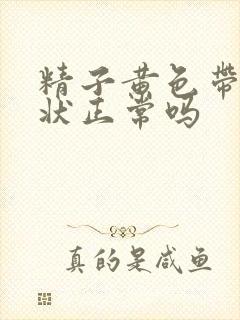 精子黄色带
状正常吗
真的是咸鱼